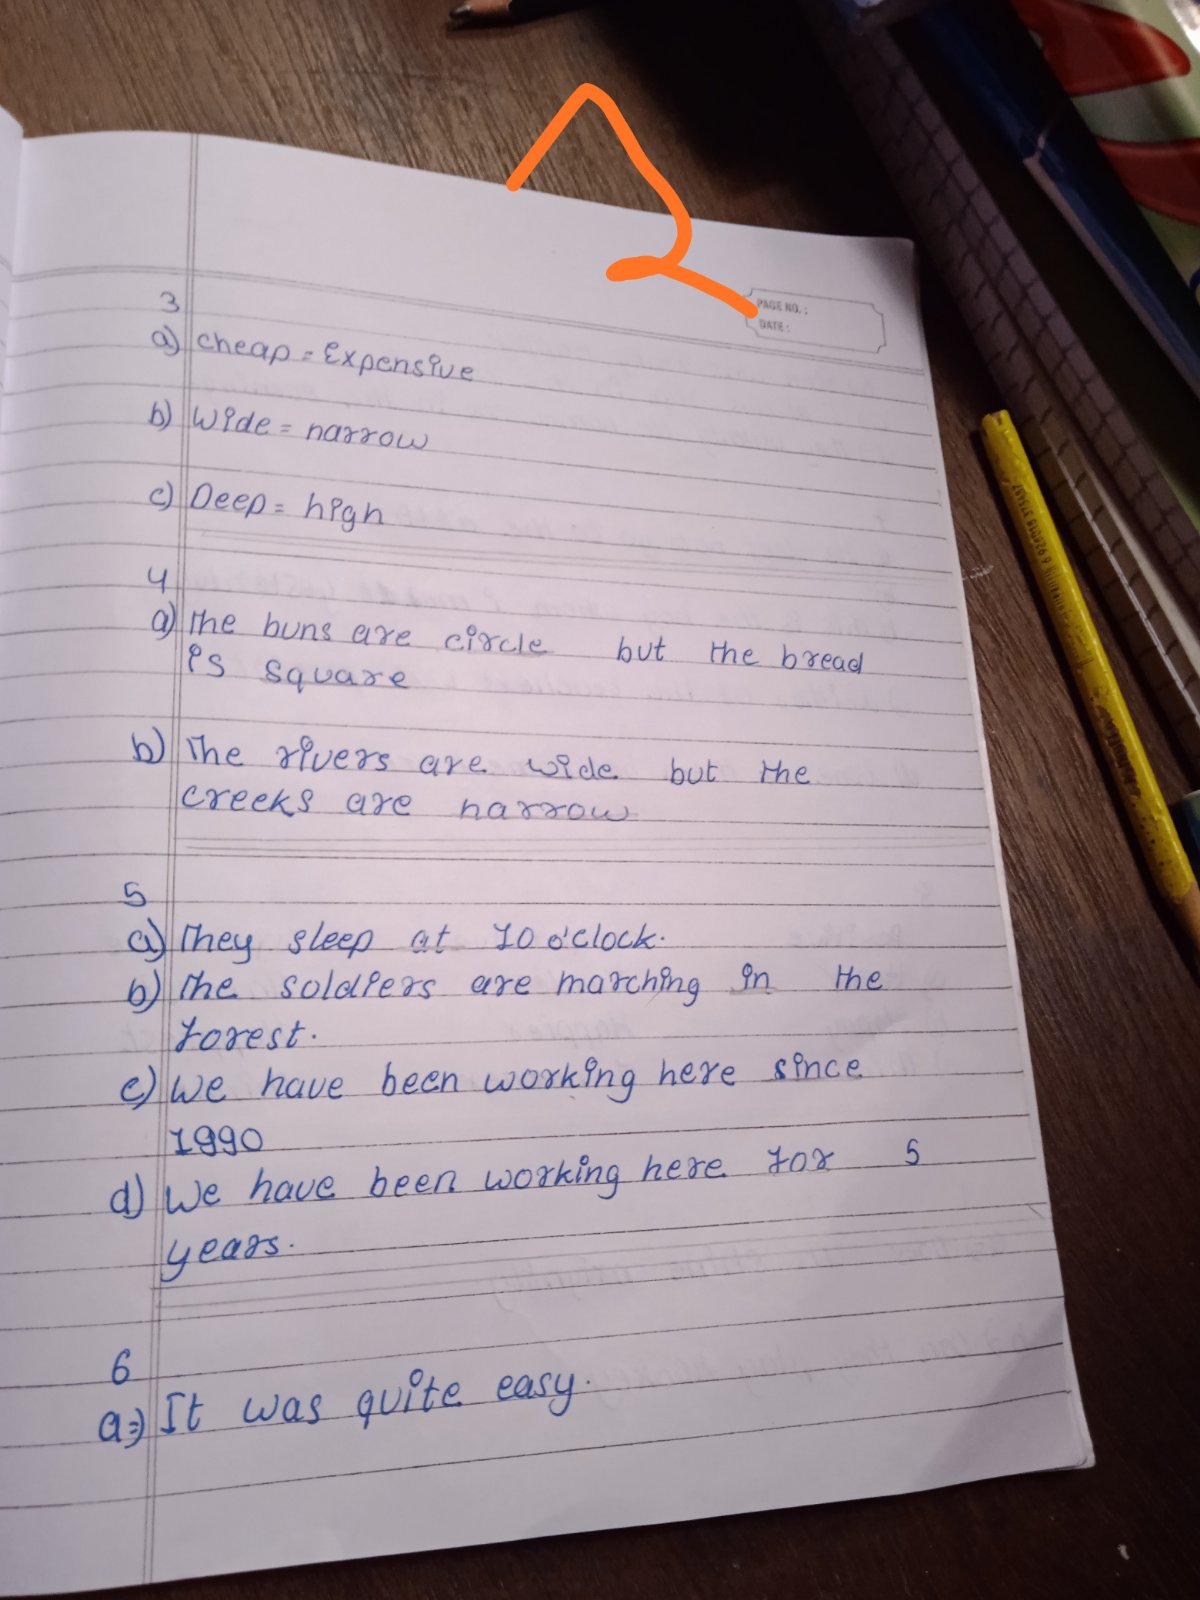 PAGE NO. :
DATE :
3
a) cheap = Expensive
b) Wide = narrow
c) Deep = high
4
a) The buns are circle but the bread
is square
b) The rivers are wide but the
creeks are narrow
5
a) They sleep at 10 o'clock.
b) The soldiers are marching in the
forest.
c) We have been working here since
1990
d) We have been working here for 5
years.
6
a=) It was quite easy.